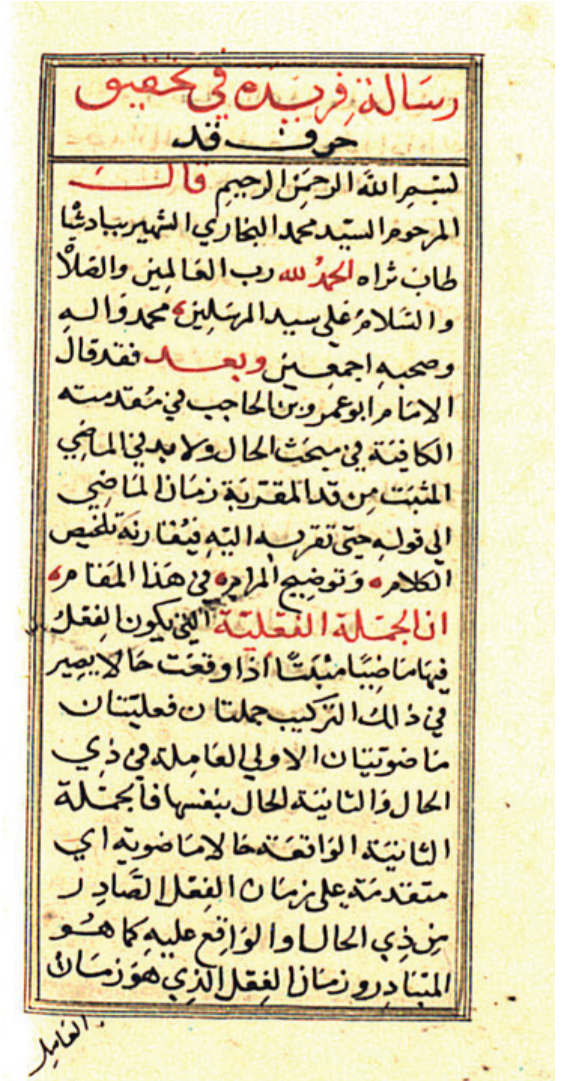 رسالة فريدة في تحقيق
حرف قد
بسم الله الرحمن الرحيم قال
المرحوم السيد محمد البخاري الشهير ببادشا
طاب ثراه الحمد لله رب العالمين والصلاة
والسلام على سيد المرسلين محمد واله
وصحبه اجمعين وبعد فقد قال
الامام ابو عمرو بن الحاجب في مقدمته
الكافية في مبحث الحال ولا بد في الماضي
المثبت من قد المقربة زمان الماضي
الى قوله حتى تقربه اليه فيقارنه تلخيص
الكلام وتوضيح المرام في هذا المقام
ان الجملة الفعلية التي يكون الفعل
فيها ماضيا مثبتا اذا وقعت حالا يصير
في ذلك التركيب جملتان فعليتان
ماضويتان الاولى العاملة في ذي
الحال والثانية الحال بنفسها فالجملة
الثانية الواقعة حالا ماضوية اي
متقدمة على زمان الفعل الصادر
من ذي الحال او الواقع عليه كما هو
المتبادر وزمان الفعل الذي هو زمان
العامل